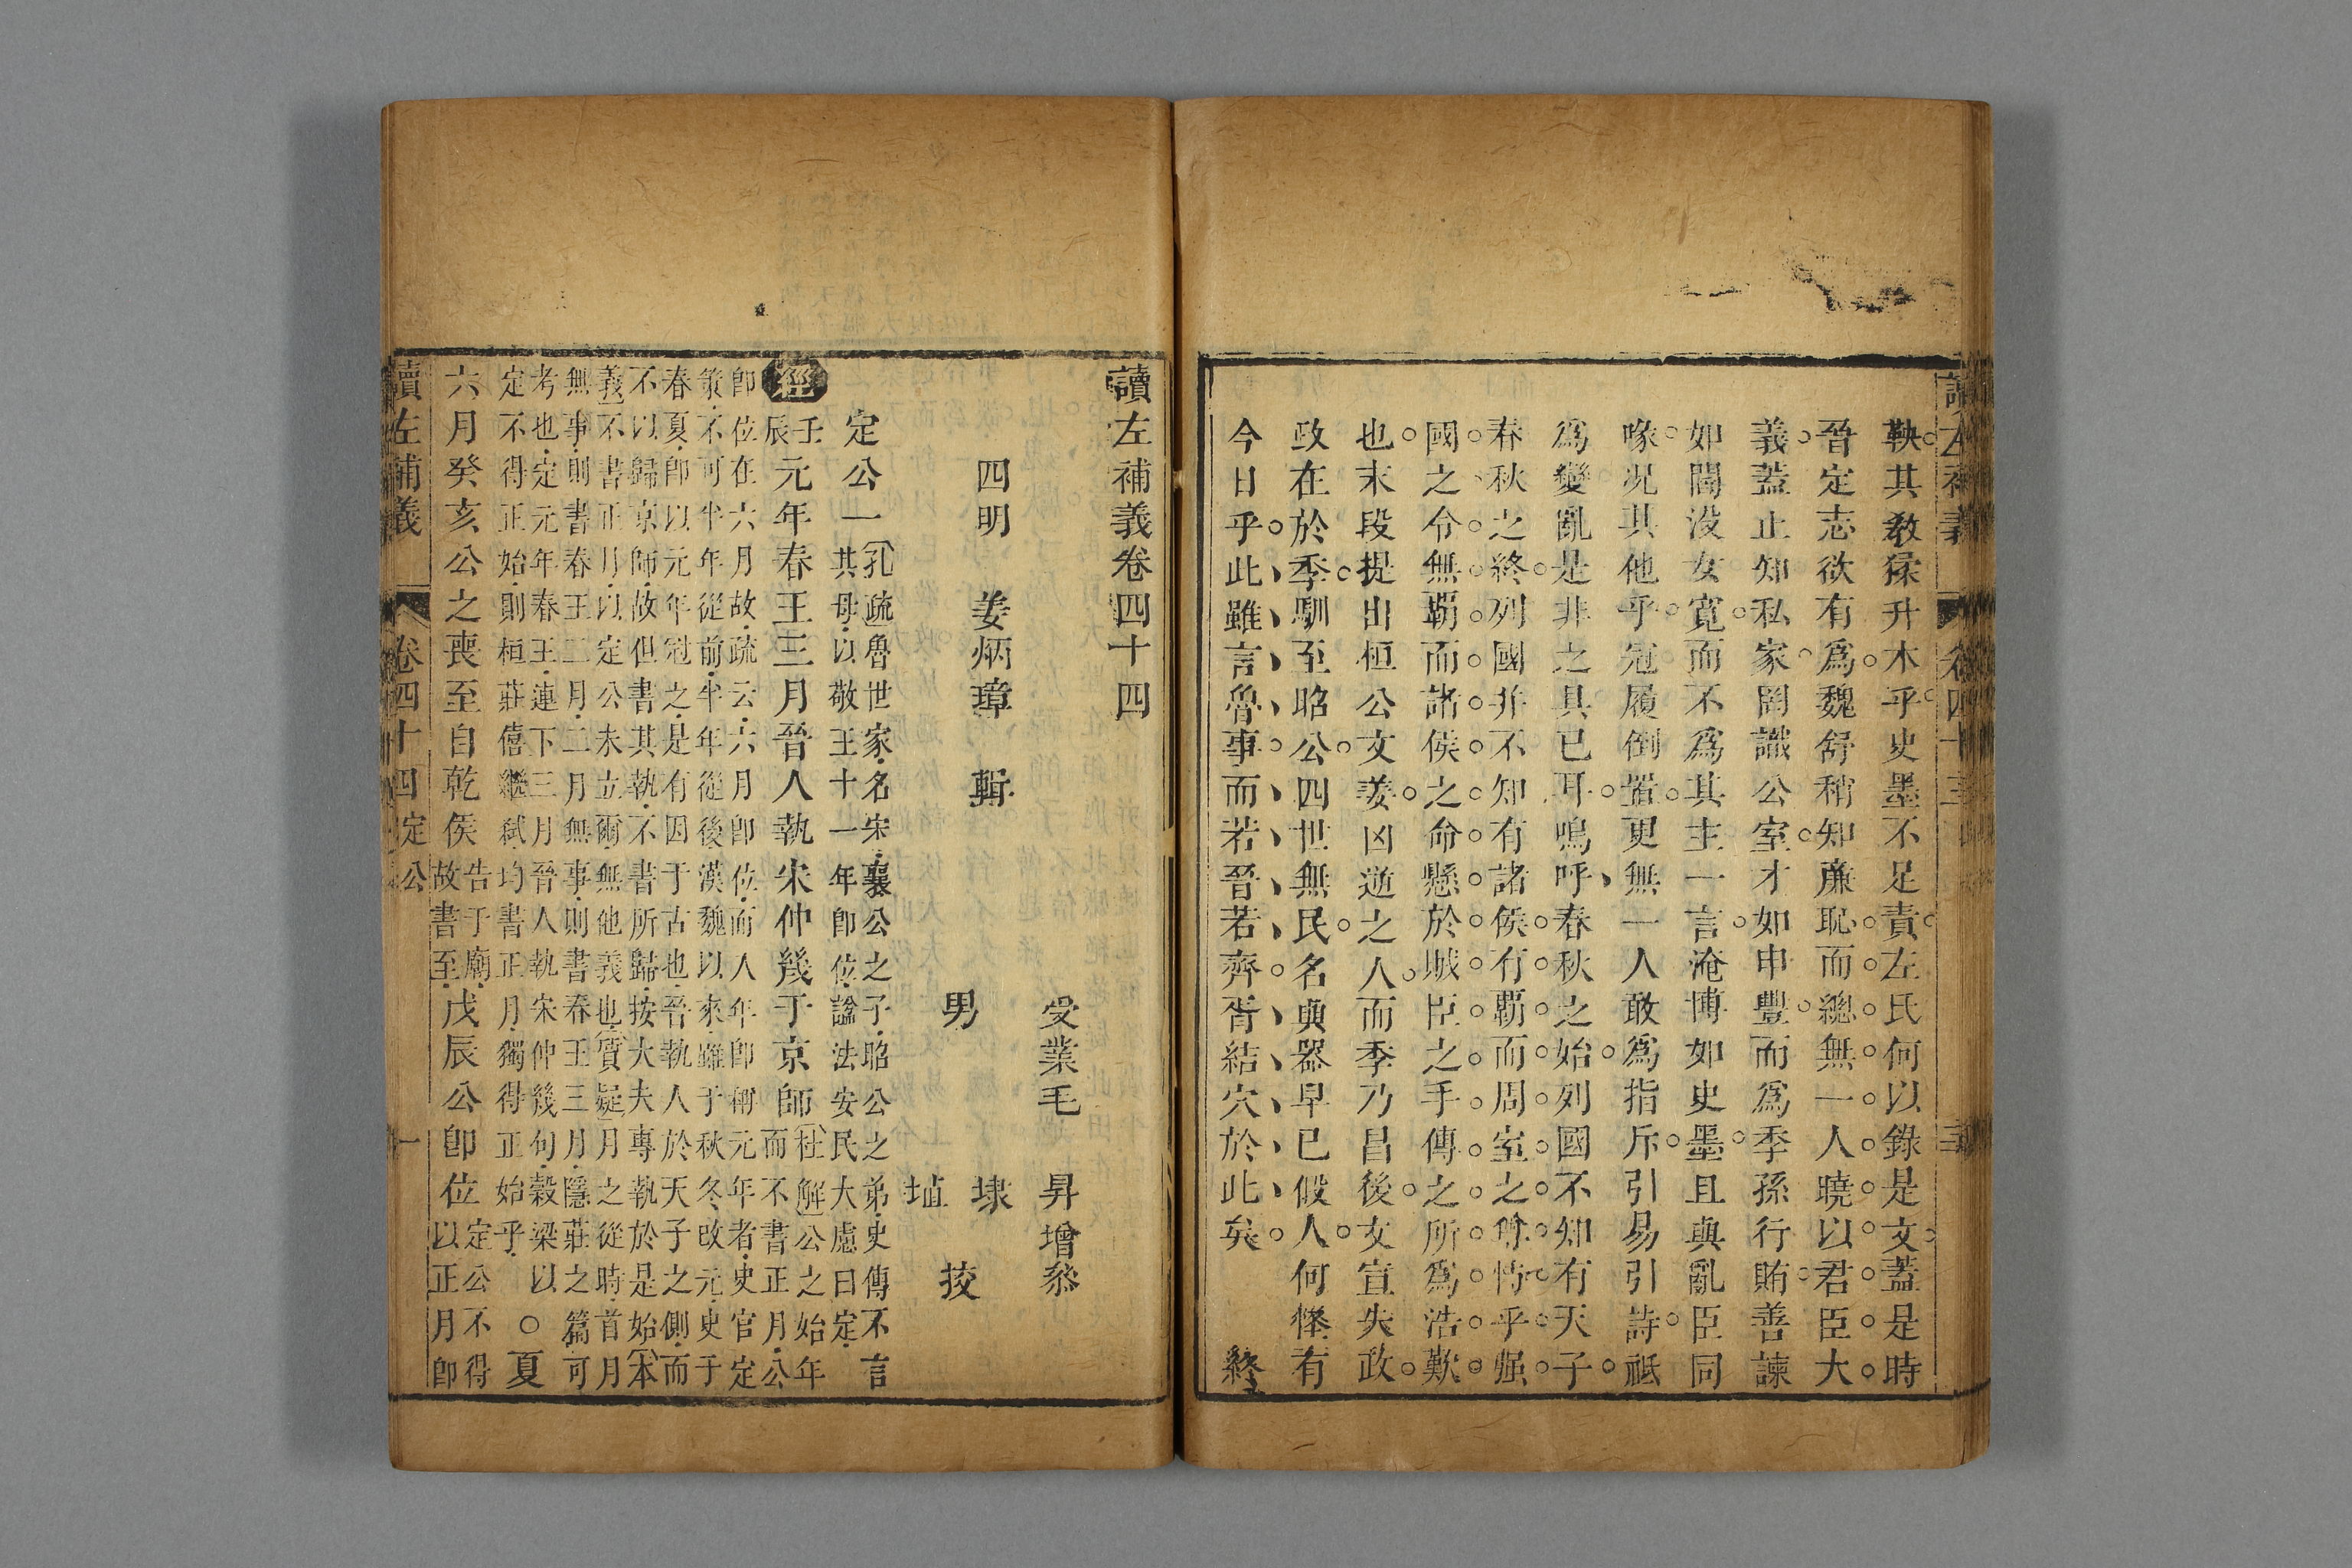 鞅其敎猱升木乎史墨不足責左氏何以錄是文蓋是時
晉定志欲有爲魏舒稍知廉恥而總無一人曉以君臣大
義蓋止知私家罔識公室才如申豐而爲季孫行賄善諫
如閻沒女寬而不爲其主一言淹博如史墨且與亂臣同
喙况其他乎冠履倒置更無一人敢爲指斥引易引詩祗
爲變亂是非之具已耳嗚呼春秋之始列國不知有天子
春秋之終列國并不知有諸侯有覇而周室之尊恃乎强
國之令無覇而諸侯之命懸於賊臣之手傳之所爲浩歎
也末段提出桓公文姜凶逆之人而季乃昌後文宣失政
政在於季馴至昭公四世無民名與器早已假人何怪有
今日乎此雖言魯事而若晉若齊胥結穴於此矣 終
讀左補義卷四十四
受業毛 昇增 黎
四明 姜炳璋 輯
男 埭 埴 挍
定公一 孔疏魯世家名宋襄公之子昭公之弟史傳不言
其母以敬王十一年卽位諡法安民大慮曰定
經 壬辰 元年春王三月晉人執宋仲幾于京師 杜解公之始年
而不書正月公
卽位在六月故疏云六月卽位而入年卽稱元年者史官定
策不可半年從前半年從後漢魏以來雖于秋冬改元史于
春夏卽以元年冠之是有因于古也晉執人於天子之側而
不以歸京師故但書其執不書所歸按大夫專執於是始本
義不書正月以定公未立爾無他義也質疑月之從時首月
無事則書春王二月二月無事則書春王三月隱莊之篇可
考也定元年春王連下三月晉人執宋仲幾句穀梁以
定不得正始則桓莊僖繼弒均書正月獨得正始乎 ○夏
六月癸亥公之喪至自乾侯 告于廟故書至 戊辰公卽位 定公不得以正月卽
讀左補義 卷四十四 定公 一